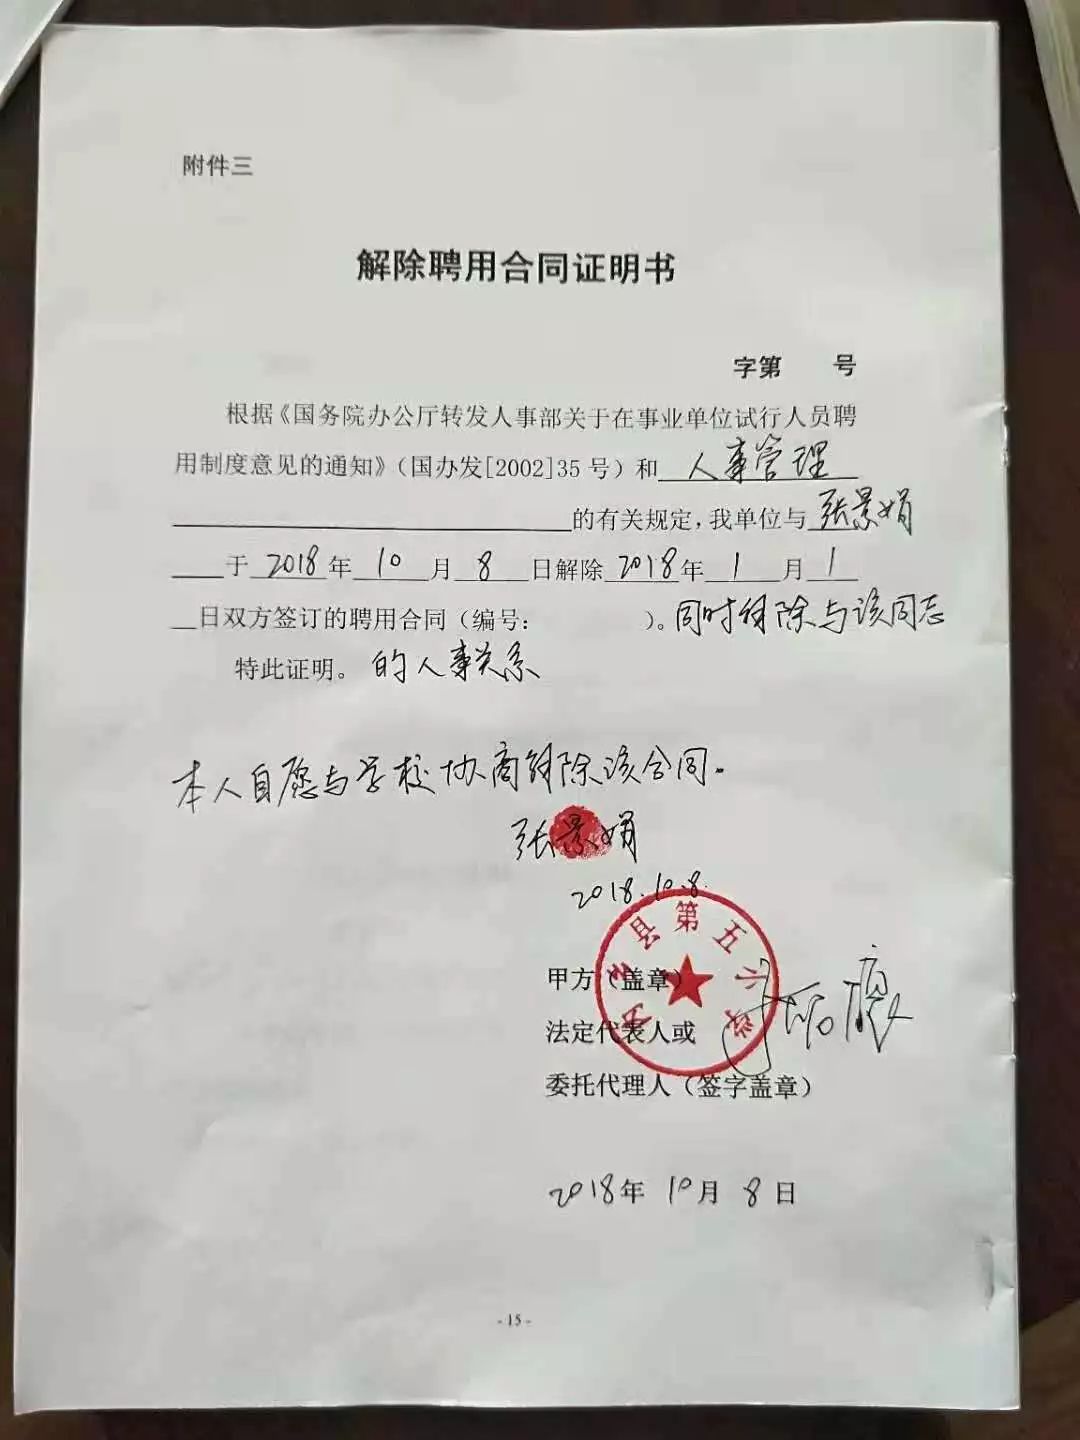 附件三
解除聘用合同证明书
字第 号
根据《国务院办公厅转发人事部关于在事业单位试行人员聘
用制度意见的通知》(国办发[2002]35号)和 人事管理
的有关规定,我单位与 张景娟
于 2018 年 10 月 8 日解除 2018 年 1 月 1
日双方签订的聘用合同(编号: )。同时解除与该同志
特此证明。的人事关系
本人自愿与学校协商解除该合同.
张景娟
2018.10.8.
县第五小学
甲方(盖章)
法定代表人或
委托代理人(签字盖章)
2018年 10月 8日
- 15 -